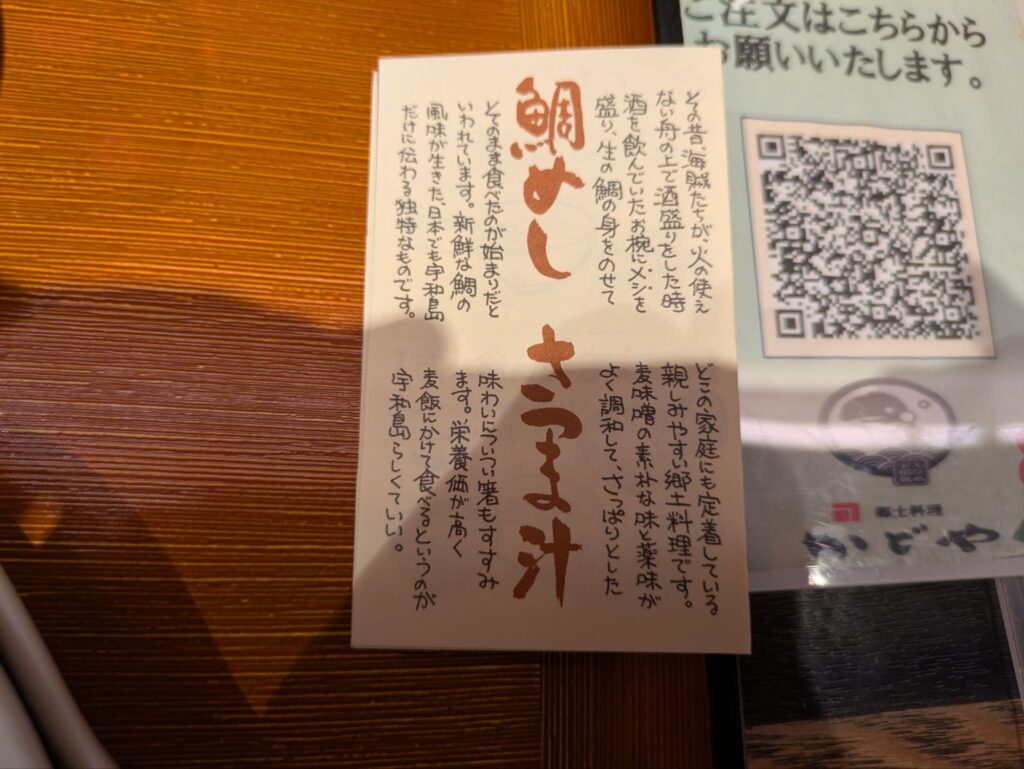 鯛めし
その昔、海賊たちが、火の使え
ない舟の上で酒盛りをした時
酒を飲んでいたお椀にメシを
盛り、生の鯛の身をのせて
そのまま食べたのが始まりだと
いわれています。新鮮な鯛の
風味が生きた、日本でも宇和島
だけに伝わる独特なものです。
さつま汁
どこの家庭にも定着している
親しみやすい郷土料理です。
麦味噌の素朴な味と薬味が
よく調和して、さっぱりとした
味わいについつい箸もすすみ
ます。栄養価が高く
麦飯にかけて食べるというのが
宇和島らしくていい。
ご注文はこちらから
お願いいたします。
郷土料理
かどや